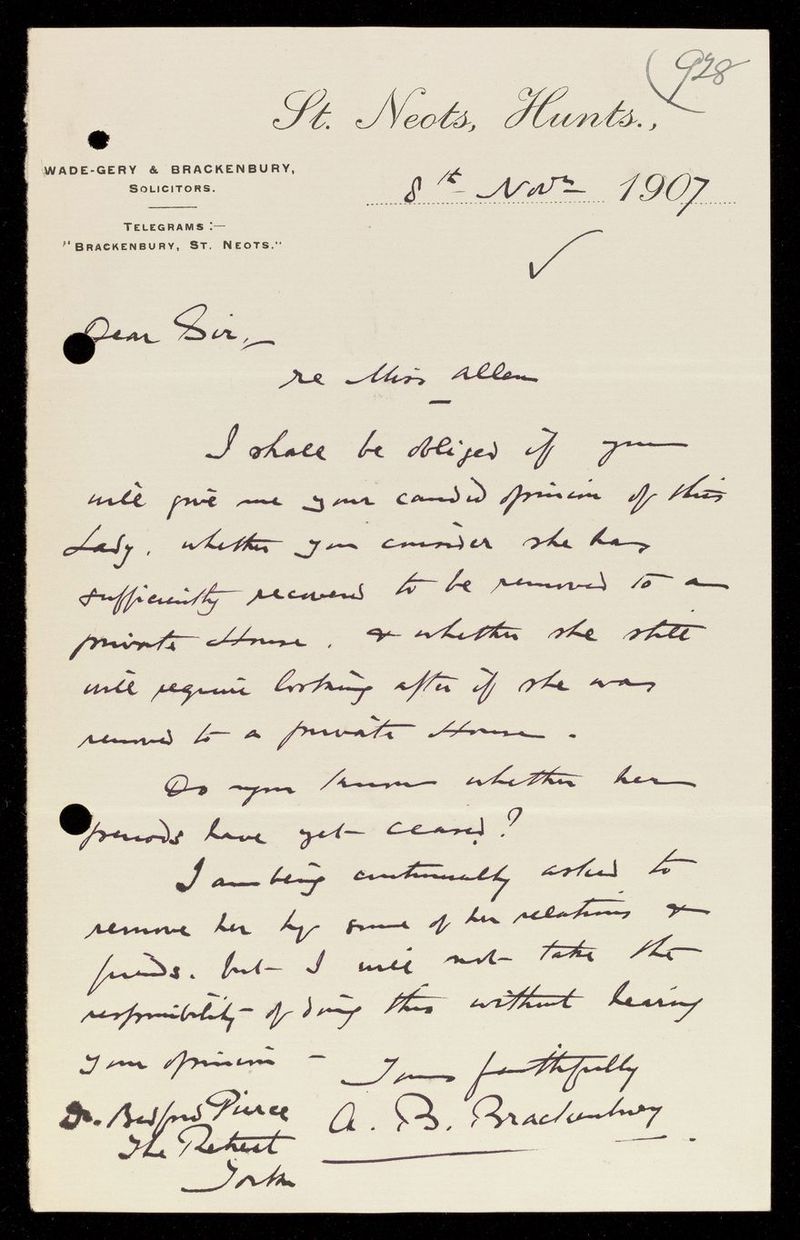 928
St. Neots, Hunts.,
WADE-GERY & BRACKENBURY,
SOLICITORS.
TELEGRAMS:—
"BRACKENBURY, ST. NEOTS."
8th Novr 1907
Dear Sir,—
re Miss Allen
I shall be obliged if you
will give me your candid opinion of this
Lady, whether you consider she has
sufficiently recovered to be removed to a
private House, & whether she still
will require looking after if she was
removed to a private House.
Do you know whether her
periods have yet ceased?
I am being continually asked to
remove her by some of her relations &
friends, but I will not take the
responsibility of doing this without hearing
your opinion —
Yours faithfully
A. B. Brackenbury
Dr. Bedford Pierce
The Retreat
York